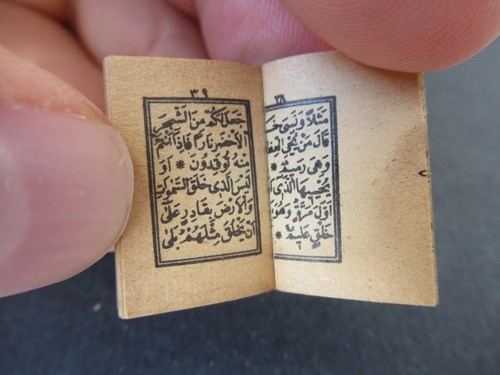 ٣٨
مَثَلًا وَنَسِىَ
قَالَ مَنْ يُحْيِى
وَهِىَ رَمِيمٌ *
يُحْيِيهَا الَّذِى
اَوَّلَ مَرَّةٍ وَهُوَ
خَلْقٍ عَلِيمٌ *
٣٩
جَعَلَ لَكُمْ مِنَ الشَّجَرِ
الْاَخْضَرِ نَارًا فَاِذَا اَنْتُمْ
مِنْهُ تُوقِدُونَ * اَوَ
لَيْسَ الَّذِى خَلَقَ السَّمٰوَاتِ
وَالْاَرْضَ بِقَادِرٍ عَلٰى
اَنْ يَخْلُقَ مِثْلَهُمْ بَلٰى